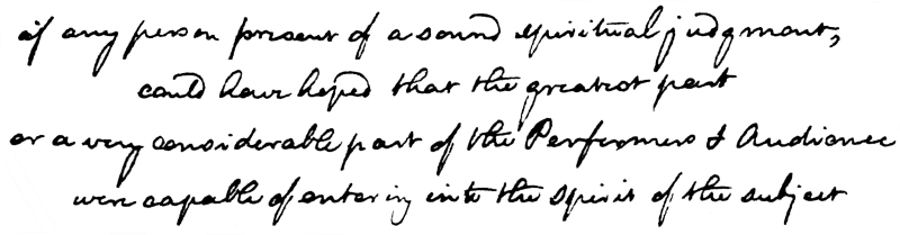 if any person present of a sound spiritual judgment,
could have hoped that the greatest part
or a very considerable part of the Performers & Audience
were capable of entering into the spirit of the subject